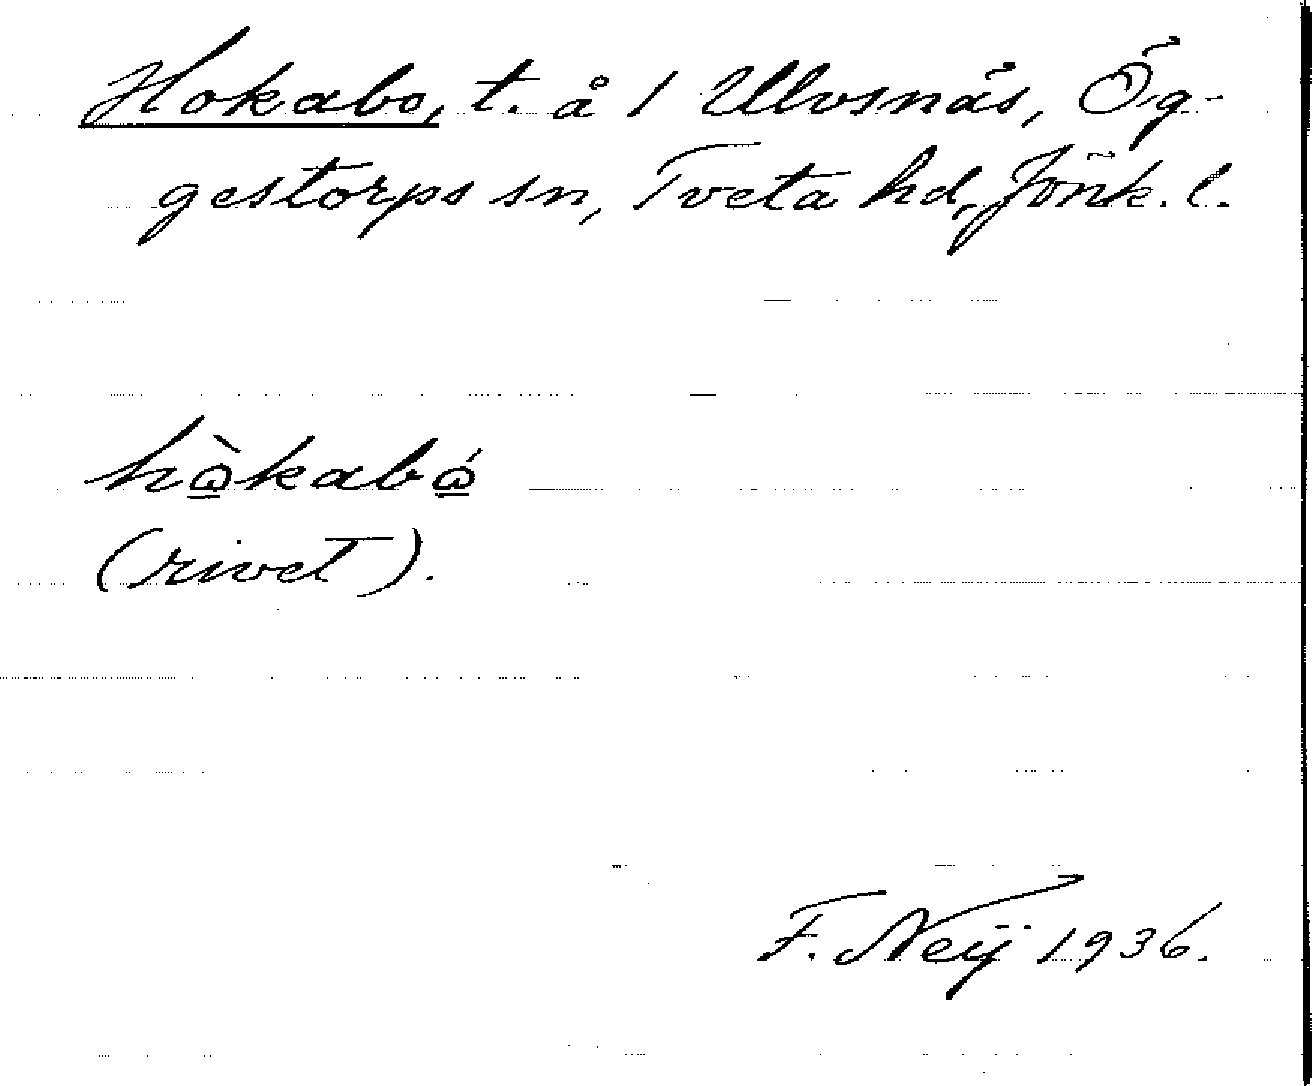 Hokabo, t. å 1 Ulvsnäs, Ög-
gestorps sn, Tveta hd, Jönk. l.
hὼ̲kabώ̲
(rivet).
F. Neij 1936.